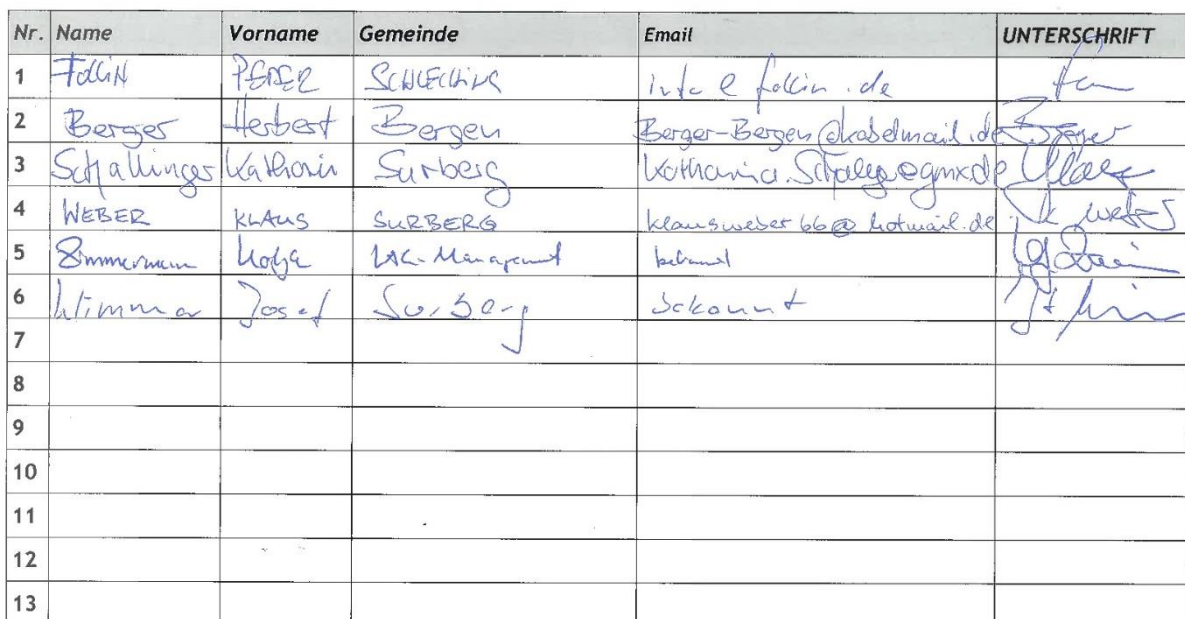 Nr. Name Vorname Gemeinde Email UNTERSCHRIFT
1 Follin PEDER SCHLECHING info@follin.de
2 Berger Herbert Bergen Berger-Bergen@kabelmail.de Berger
3 Schallinger Katharin Surberg
4 WEBER KLAUS SURBERG klausweber66@hotmail.de K. Weber
5 Zimmermann LAG-Management bekannt
6 Wimmer Josef Surberg bekannt
7
8
9
10
11
12
13